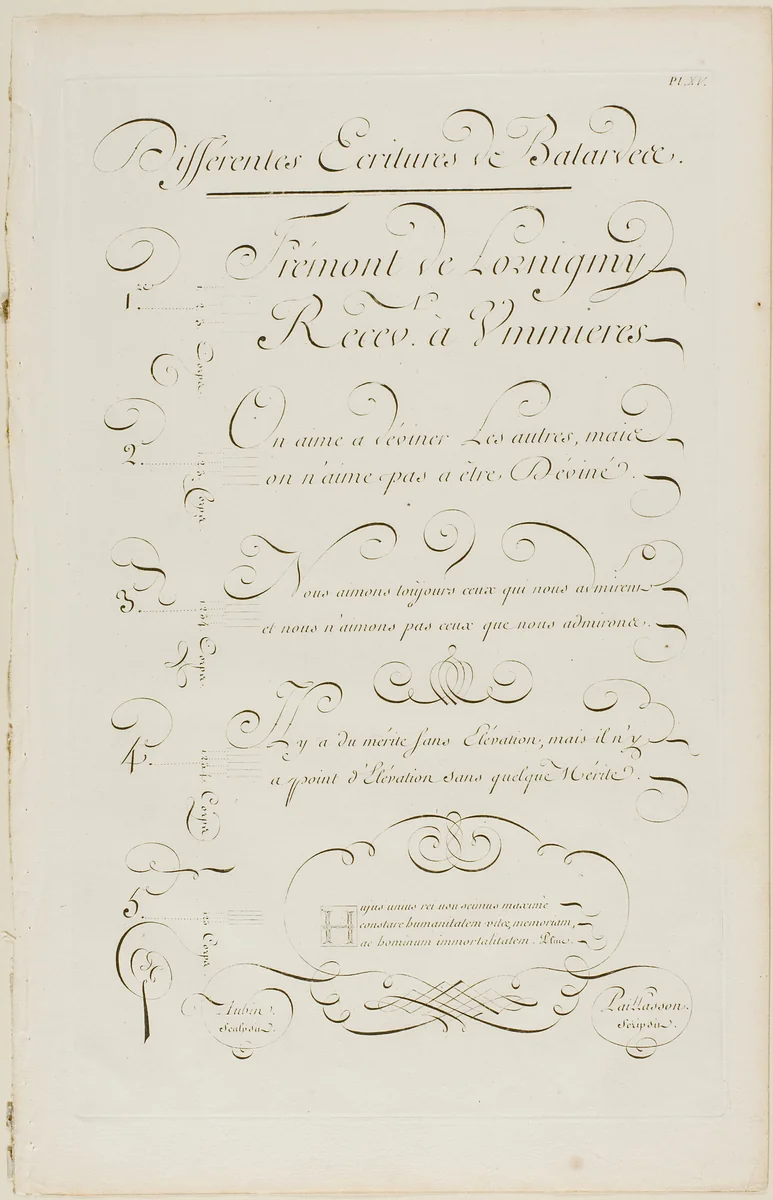 Pl. XV.
Différentes Ecritures de Batardes.
1.re
Frémont de
Recev.r à
5 Corps
2.
On aime a déviner Les autres, mais
on n'aime pas a être Déviné.
Corps
3.
Nous aimons toujours ceux qui nous admirent
et nous n'aimons pas ceux que nous admirons.
Corps
4.
Il y a du mérite sans Elévation, mais il n'y
a point d'Elévation sans quelque Mérite.
Corps
5.
Hujus unius rei usu scimus maximè
constare humanitatem vitæ, memoriam,
ac hominum immortalitatem. Pline.
Corps
Aubin Sculpsit.
Paillasson Scripsit.